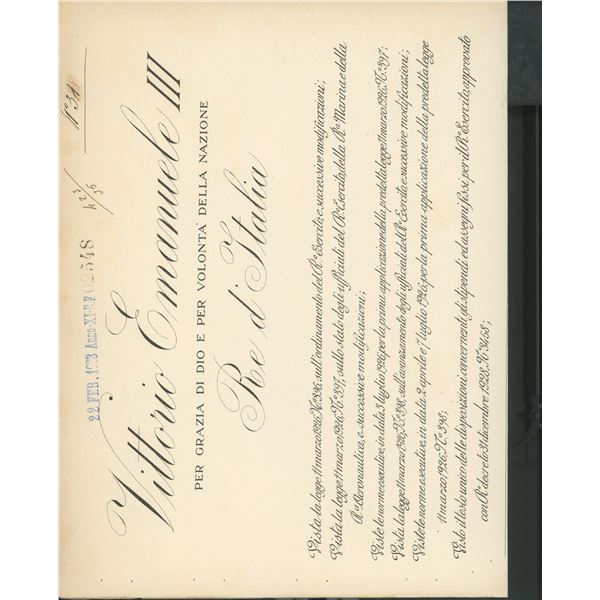 N° 38
22 FEB. 1933 Anno XI-R.P. 02548
Vittorio Emanuele III
PER GRAZIA DI DIO E PER VOLONTA' DELLA NAZIONE
Re d'Italia
Vista la legge 11 marzo 1926, N. 396, sull'ordinamento del R.° Esercito, e successive modificazioni;
Vista la legge 11 marzo 1926, N. 397, sullo stato degli ufficiali del R.° Esercito, della R.ª Marina e della
R.ª Aeronautica, e successive modificazioni;
Viste le norme esecutive, in data 3 luglio 1926 per la prima applicazione della predetta legge 11 marzo 1926, N. 397;
Vista la legge 11 marzo 1926, N. 398, sull'avanzamento degli ufficiali del R.° Esercito e successive modificazioni;
Viste le norme esecutive, in data 2 aprile e 7 luglio 1926 per la prima applicazione della predetta legge
11 marzo 1926, N. 398;
Visto il testo unico delle disposizioni concernenti gli stipendi ed assegni fissi per il R.° Esercito, approvato
con R.° decreto 31 dicembre 1928, N. 3458;